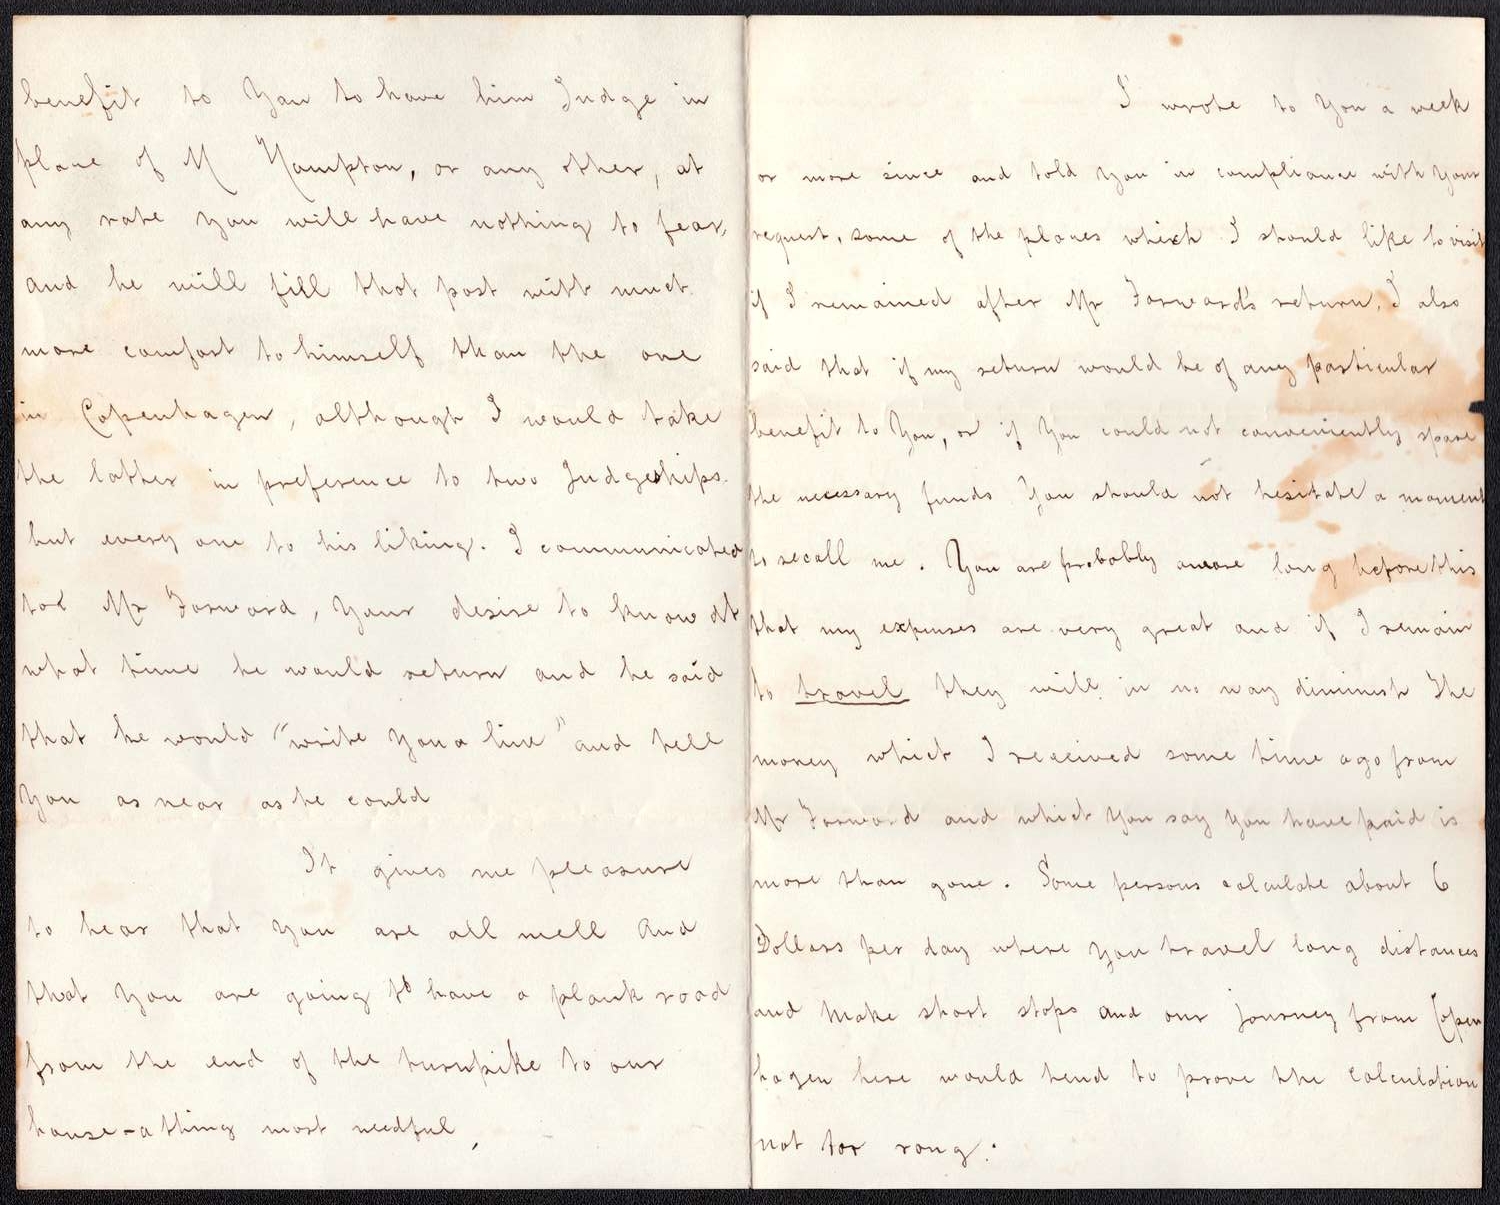 benefit to You to have him Judge in
place of M Hampton, or any other, at
any rate you will have nothing to fear,
and he will fill that post with much
more comfort to himself than the one
in Copenhagen, although I would take
the latter in preference to two Judgeships.
but every one to his liking. I communicated
to Mr Forward, Your desire to know at
what time he would return and he said
that he would "write You a line" and tell
You as near as he could
It gives me pleasure
to hear that You are all well And
that You are going to have a plank road
from the end of the turnpike to our
house - a thing most needful,
I wrote to You a week
or more since and told You in compliance with Your
request, some of the places which I should like to visit
if I remained after Mr Forward's return, I also
said that if my return would be of any particular
benefit to You, or if You could not conveniently spare
the necessary funds You should not hesitate a moment
to recall me. You are probably aware long before this
that my expenses are very great and if I remain
to travel they will in no way diminish The
money which I received some time ago from
Mr Forward and which You say You have paid is
more than gone. Some persons calculate about 6
Dollars per day where You travel long distances
and Make short stops and our journey from Copen
hagen here would tend to prove the calculation
not far rong.